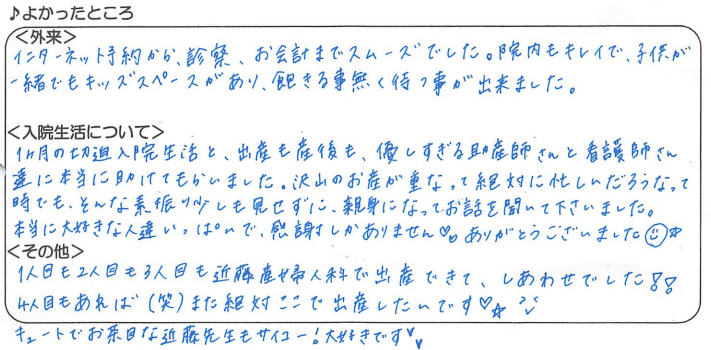 ♪よかったところ
＜外来＞
インターネット予約から、診察、お会計までスムーズでした。院内もキレイで、子供が
一緒でもキッズスペースがあり、飽きる事無く待つ事が出来ました。
＜入院生活について＞
1ヶ月の切迫入院生活と、出産も産後も、優しすぎる助産師さんと看護師さん
達に本当に助けてもらいました。沢山のお産が重なって絶対に忙しいだろうなって
時でも、そんな素振り少しも見せずに、親身になってお話を聞いて下さいました。
本当に大好きな人達いっぱいで、感謝しかありません♡♡ありがとうございました☺☆
＜その他＞
1人目も2人目も3人目も近藤産婦人科で出産できて、しあわせでした!!
4人目もあれば（笑）また絶対ここで出産したいです♡☆
キュートでお茶目な近藤先生もサイコー！大好きです♡♡